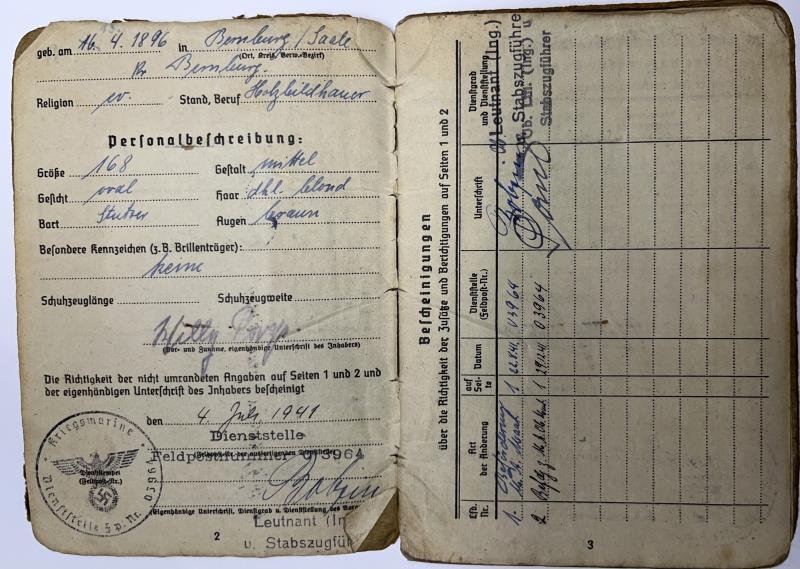 geb. am 16. 4. 1896 in Bernburg/Saale
(Ort, Kreis, Verw.-Bezirk)
Kr. Bernburg.
Religion ev. Stand, Beruf Holzbildhauer
Personalbeschreibung:
Größe 168 Gestalt mittel
Gesicht oval Haar dkl. blond
Bart Stutzer Augen braun
Besondere Kennzeichen (z.B. Brillenträger):
keine
Schuhzeuglänge Schuhzeugweite
Willy
(Vor- und Zuname, eigenhändige Unterschrift des Inhabers)
Die Richtigkeit der nicht umrandeten Angaben auf Seiten 1 und 2 und
der eigenhändigen Unterschrift des Inhabers bescheinigt
den 4. Juli 1941
Dienststelle
Feldpostnummer 03964
Kriegsmarine
Dienststempel
(Feldpost-Nr.)
Dienststelle F.p. Nr. 03964
(Eigenhändige Unterschrift, Dienstgrad u. Dienststellung des
Leutnant (In
u. Stabszugfüh
2
Bescheinigungen
über die Richtigkeit der Zusätze und Berichtigungen auf Seiten 1 und 2
Lfd. Nr.
Art der Änderung
auf Seite
Datum
Dienststelle (Feldpost-Nr.)
Unterschrift
Dienstgrad und Dienststellung
1. Beförderung 1 03964
Leutnant (Ing.)
u. Stabszugführer
2 1 29.12.41 03964
Ob. Ltn. (Ing.) u
Stabszugführer
3